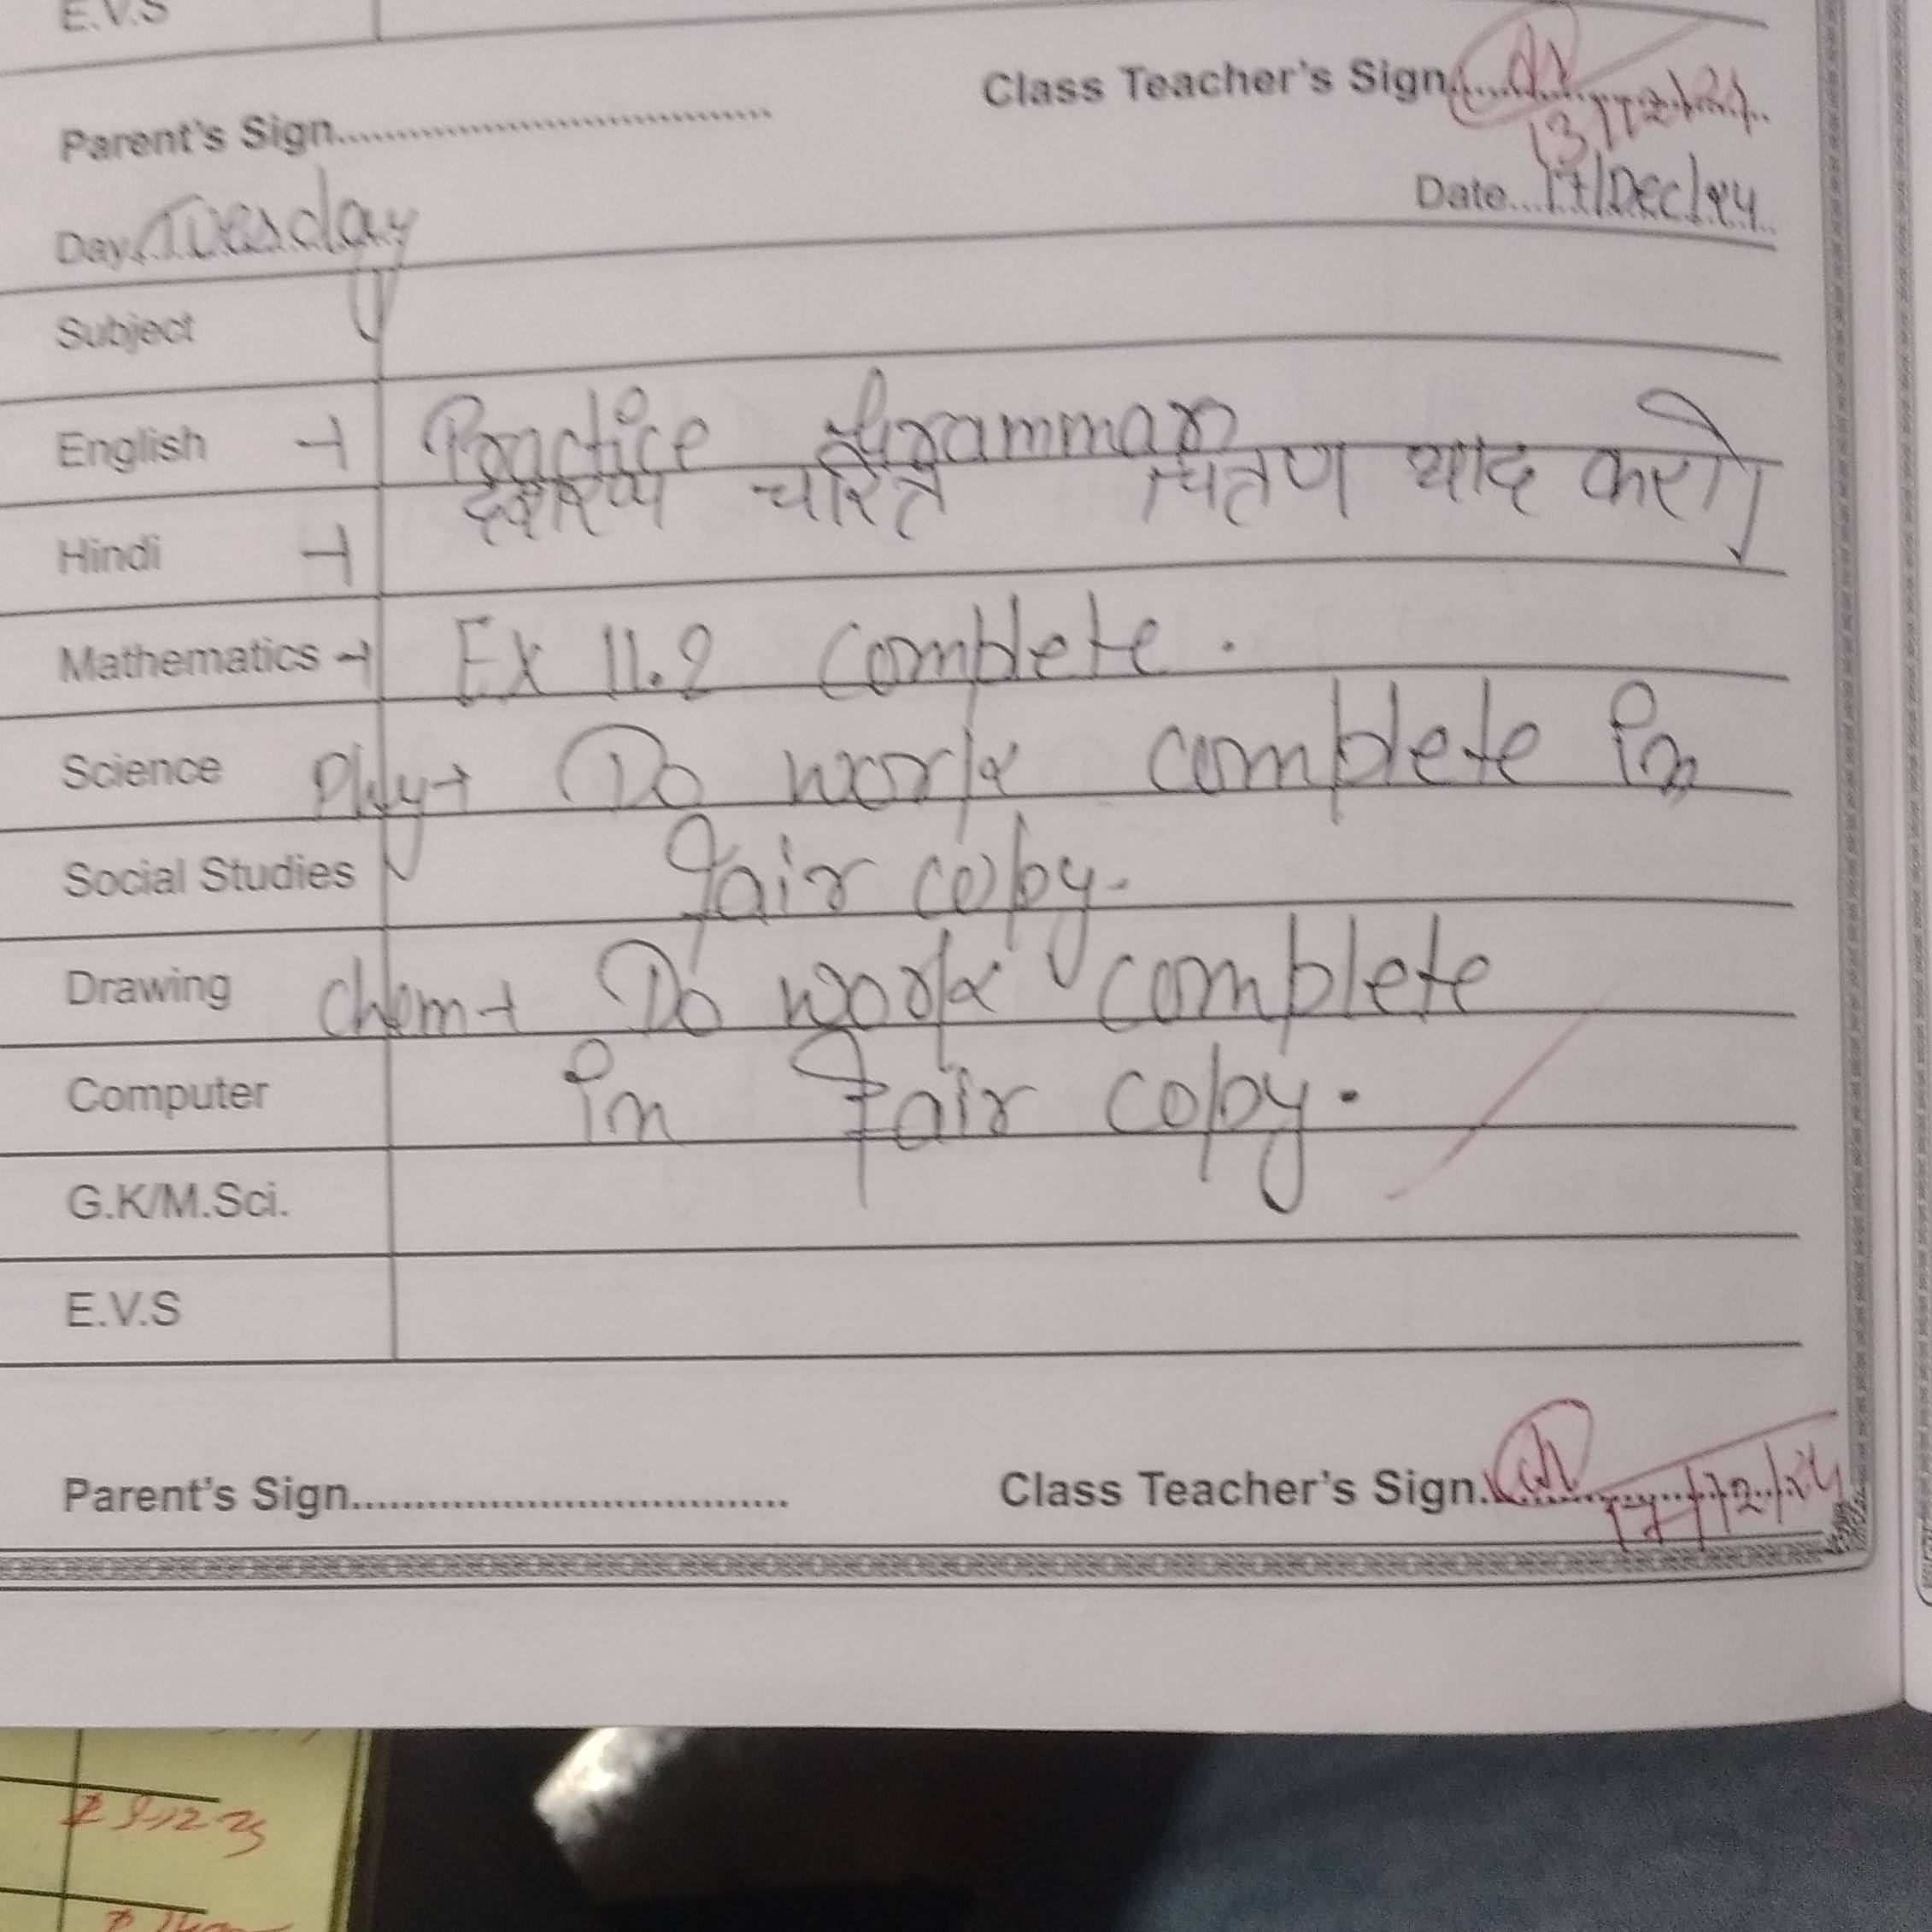 E.V.S
Class Teacher's Sign............
13/12/24
Parent's Sign....................................
Date...17/Dec/24
Day.Tuesday
Subject
English → Practice Grammar
Hindi → चरित्र चित्रण याद करो।
Mathematics → Ex 11.2 complete.
Science Phy → Do work complete in
Social Studies fair copy.
Drawing Chem → Do work complete
Computer in fair copy.
G.K/M.Sci.
E.V.S
Parent's Sign....................................
Class Teacher's Sign............
17/12/24